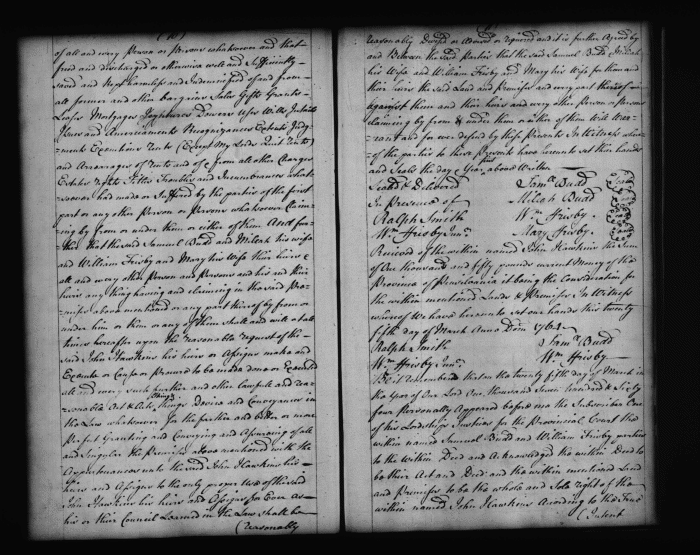 of all and every Person or Persons whatsoever and that
freed and discharged or otherwise well and Sufficiently
saved and kept harmless and Indemnified of and from
all former and other bargains Sales Gifts Grants
Leases Mortgages Joyntures Dowers Uses Wills Intails
Fines and Amerciaments Recognizances Extents Judg-
ments Executions Rents (Except My Lords Quit Rents)
and Arrearages of Rents and of & from all other Charges
Estates Rights Titles Troubles and Incumbrances what-
soever had made or Suffered by the parties of the first
part or any other Person or Persons whatsoever Claim-
ing by from or under them or either of them And fur-
ther that the said Samuel Budd and Milcah his wife
and William Frisby and Mary his Wife their heirs &
all and every other Person and Persons and his and their
heirs any thing having and claiming in the said Pre-
mises above mentioned or any part thereof by from or
under him or them or any of them shall and will at all
times hereafter upon the reasonable request of the
said John Hawkins his heirs or Assigns make and
Execute or Cause or Procured to be made done or Executed
all and every such further and other Lawfull and rea-
sonable Act & Acts thing & things Device and Conveyances in
the Law whatsoever for the further and better or more
Perfect Granting and Conveying and Assureing of all
and Singular the Premises above mentioned with the
Appurtenances unto the said John Hawkins his
heirs and Assigns to the only proper use of the said
John Hawkins his heirs and Assigns for Ever as
his or their Council Learned in the Law shall be
(Reasonably
reasonably Devised or advised or required and it is further Agreed by
and Between the said parties that the said Samuel Budd Milcah
his Wife and William Frisby and Mary his Wife for them and
their heirs the said Land and Premises and every part thereof
against them and their heirs and every other Person or Persons
claiming by from & under them or either of them will War-
rant and for ever defend by these Presents In Witness where-
of the parties to these Presents have hereunto set their hands
and Seals the day & Year first above Written
Sealed & Delivered Saml. Budd
In Presence of Milcah Budd
Ralph Smith Wm. Frisby
Wm. Frisby Junr. Mary Frisby
Received of the within named John Hawkins the Sum
of One thousand and fifty pounds current Money of the
Province of Pensilvania it being the Consideration for
the within mentioned Lands & Premises In Witness
whereof We have hereunto set our hands this twenty
fifth day of March Anno Dom 1764
Ralph Smith Saml. Budd
Wm. Frisby Junr. Wm. Frisby
Be it remembered that on the twenty fifth day of March in
the Year of Our Lord One thousand Seven hundred & Sixty
four Personally Appeared before me the Subscriber One
of his Lordships Justices for the Provincial Court the
within named Samuel Budd and William Frisby parties
to the within Deed and Acknowledged the within Deed to
be their Act and Deed and the within mentioned Land
and Premises to be the whole and Sole right of the
within named John Hawkins According to the True
(Intent